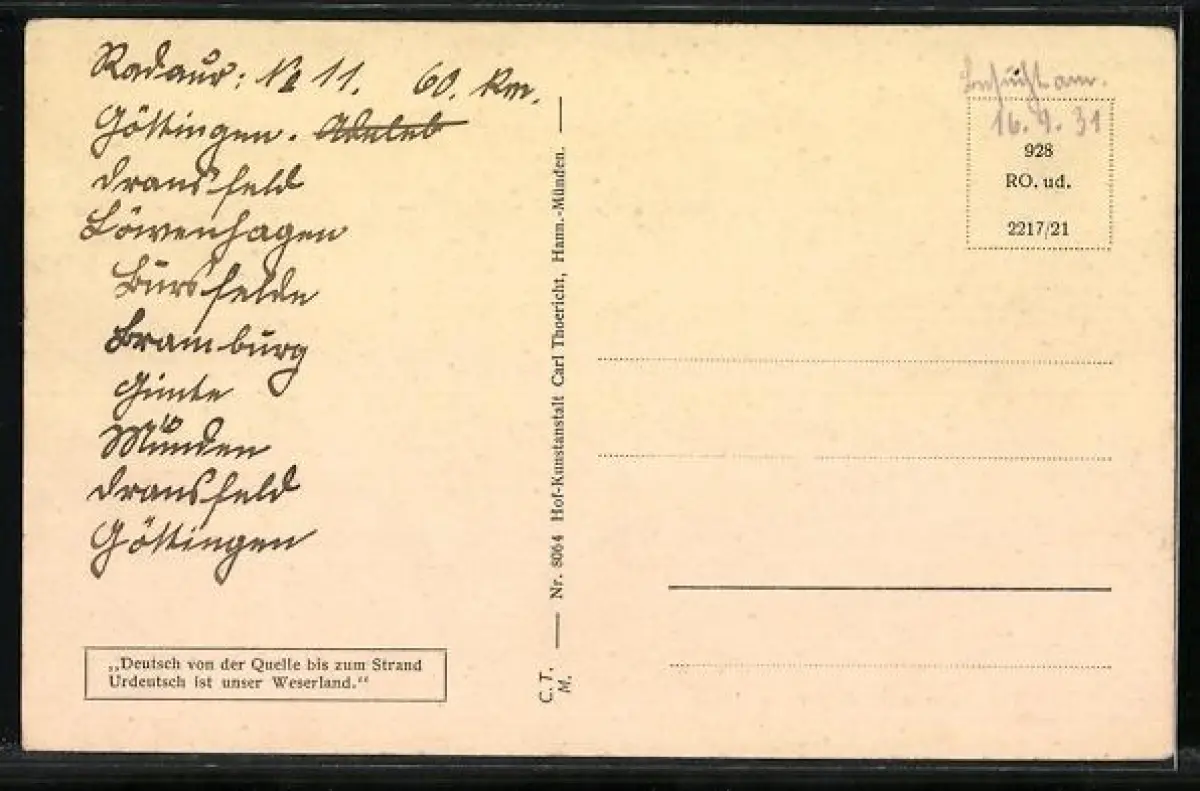 Radaur: No 11. 60. km.
Göttingen. Adeleb
Dransfeld
Löwenhagen
Bursfelde
Bramburg
Gimte
Münden
Dransfeld
Göttingen
„Deutsch von der Quelle bis zum Strand
Urdeutsch ist unser Weserland.“
C. T. M. Nr. 8064 Hof-Kunstanstalt Carl Thoericht, Hann.-Münden.
Besucht am.
16. 9. 31
928
RO. ud.
2217/21